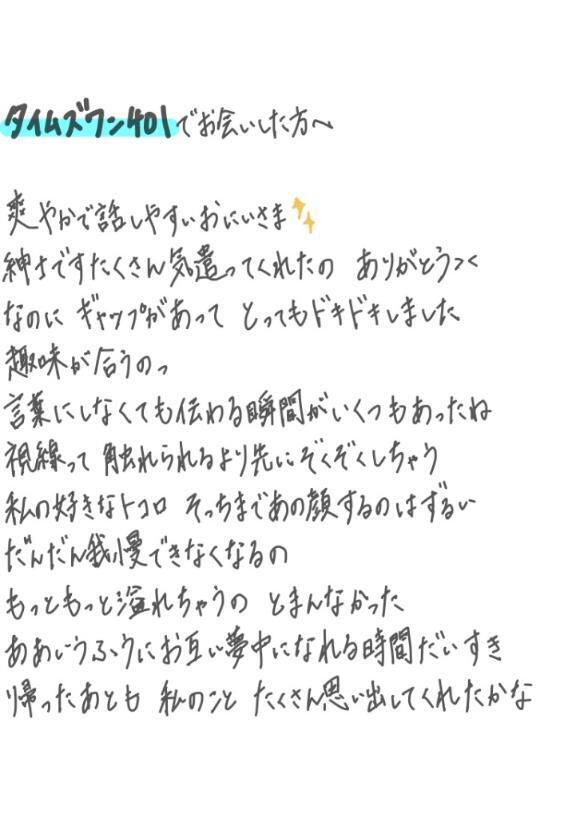 タイムズワン401でお会いした方へ
爽やかで話しやすいおにいさま
紳士ですたくさん気遣ってくれたの ありがとうつく
なのに ギャップがあって とってもドキドキしました
趣味が合うのっ
言葉にしなくても伝わる瞬間がいくつもあったね
視線って 触れられるより先にぞくぞくしちゃう
私の好きなトコロ そっちまであの顔するのはずるい
だんだん我慢できなくなるの
もっともっと溢れちゃうの とまんなかった
ああいうふうにお互い夢中になれる時間だいすき
帰ったあとも 私のこと たくさん思い出してくれたかな